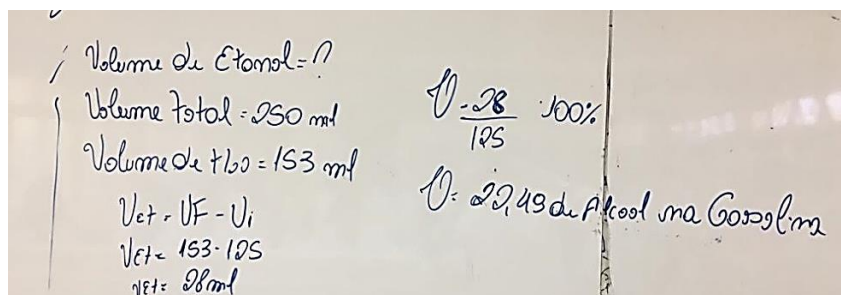 Volume de Etanol = ?
Volume total = 250 ml
Volume de H2O = 153 ml
Vet = VF - Vi
VEt = 153 - 125
VEt = 28 ml
V = 28/125 . 100%
V = 22,4% de Álcool na Gasolina